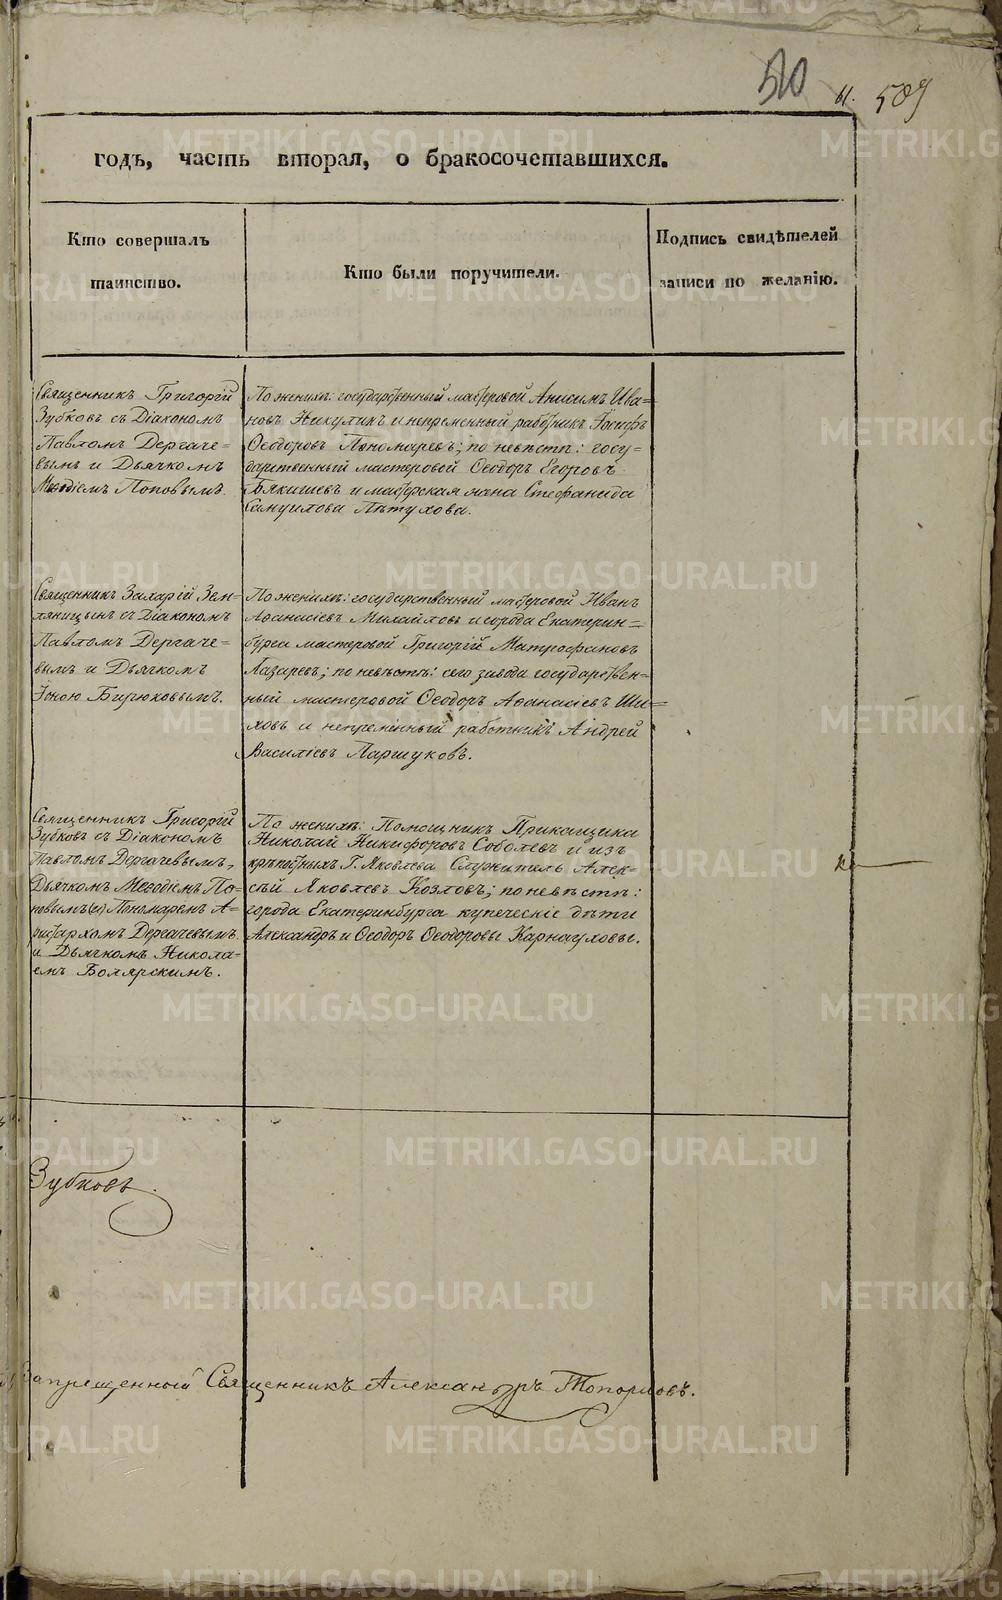 510 61. 509
годъ, часть вторая, о бракосочетавшихся.
Кто совершалъ
таинство.
Кто были поручители.
Подпись свидѣтелей
записи по желанію.
Священникъ Григорій
Зубковъ съ Діакономъ
Павломъ Дергаче=
вымъ и Дьячкомъ
Меѳодіемъ Поповымъ.
По женихѣ: государственный мастеровой Анисимъ Ива=
новъ Никулинъ и непременный работникъ Іосифъ
Ѳеодоровъ Пономаревъ; по невѣстѣ: госу=
дарственный мастеровой Ѳеодоръ Егоровъ
Бякишевъ и мастерская жена Стефанида
Самуилова Пѣтухова.
Священникъ Захарій Зем=
ляницынъ съ Діакономъ
Павломъ Дергаче=
вымъ и Дьячкомъ
Іоною Бирюковымъ.
По женихѣ: государственный мастеровой Иванъ
Аѳанасіевъ Михайловъ и города Екатерин=
бурга мастеровой Григорій Митрофановъ
Лазаревъ; по невѣстѣ: сего завода государствен=
ный мастеровой Ѳеодоръ Аѳанасіевъ Ши=
ховъ и непременный работникъ Андрей
Василіевъ Паршуковъ.
Священникъ Григорій
Зубковъ съ Діакономъ
Павломъ Дергачевымъ,
Дьячкомъ Меѳодіемъ По=
повымъ(и) Пономаремъ А=
ристархомъ Дергачевымъ
и Дьячкомъ Никола=
емъ Боярскимъ.
По женихѣ: Помощникъ Прикащика
Николай Никифоровъ Соболевъ и изъ
крѣпостныхъ Г. Яковлева Служитель Алек=
сѣй Яковлевъ Козловъ; по невѣстѣ:
города Екатеринбурга купеческіе дѣти
Александръ и Ѳеодоръ Ѳеодоровы Карнауховы.
Зубковъ.
Запрещенный Священникъ Александръ Топорковъ.
METRIKI.GASO-URAL.RU